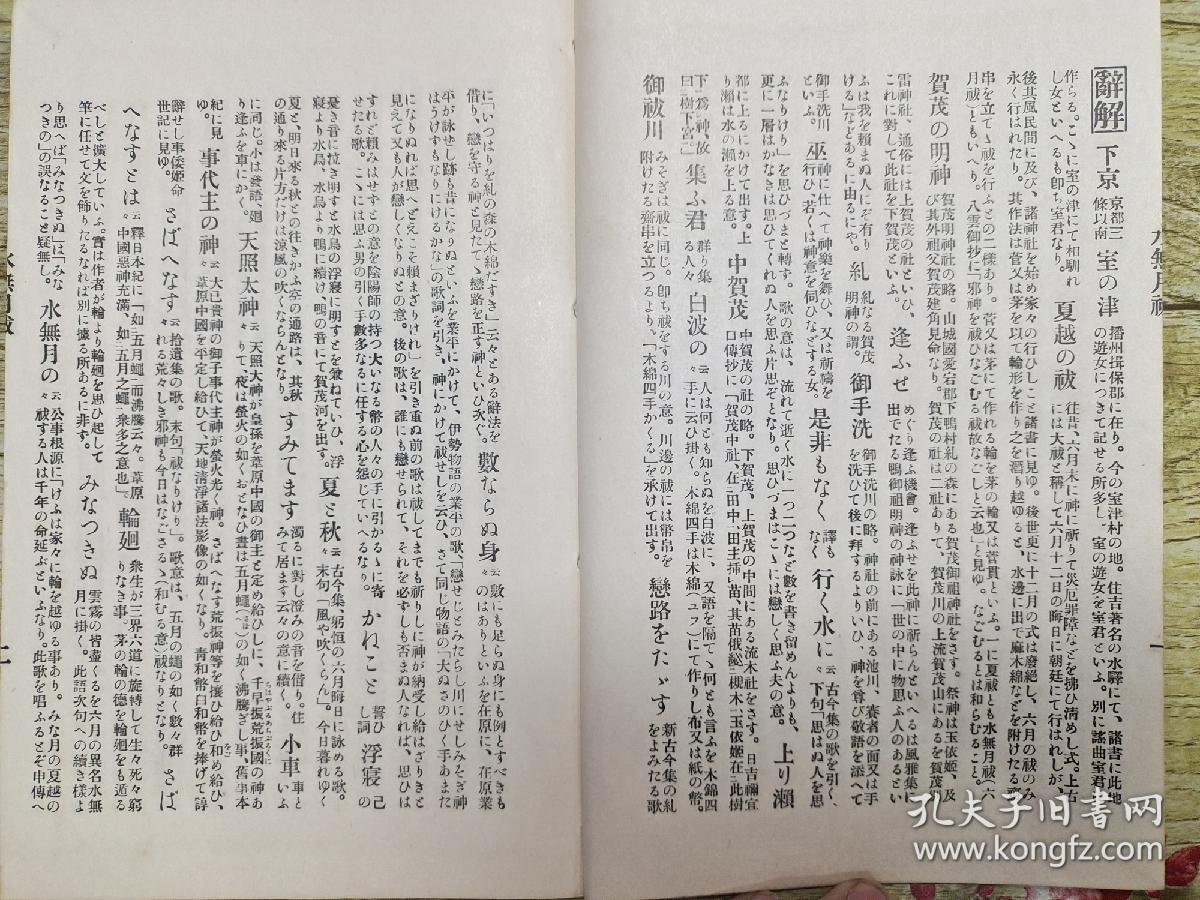 水無月祓
辭解
下京 京都三條以南
室の津 播州揖保郡に在り。今の室津村の地。住吉著名の水驛にて、諸書に此地の遊女につきて記せる所多し、室の遊女を室君といふ。別に謠曲室君
作らる。こゝに室の津にて相馴れし女といへるも卽ち室君なり。
夏越の祓 往昔、六月末に神に祈りて災厄罪障などを拂ひ淸めし式。上古には大祓と稱して六月十二日の晦日に朝廷にて行はれしが、
後其風民間に及び、諸神社を始め家々の行ひしこと諸書に見ゆ。後世更に十二月の式は廢絕し、六月の祓のみ
永く行はれたり。其作法は菅又は茅を以て輪形を作り之を潛り越ゆると、水邊に出で麻木綿などを附けたる齋
串を立てゝ祓を行ふとの二樣あり。菅又は茅にて作れる輪を茅の輪又は菅貫といふ。一に夏祓とも水無月祓(六
月祓)ともいへり。八雲御抄に「邪神を祓ひなごむる祓故なごしと云也」と見ゆ。なごむるとは和らむること。
賀茂の明神 賀茂明神社の略。山城國愛宕郡下鴨村糺の森にある賀茂御祖神社をさす。祭神は玉依姬、及び其外祖父賀茂建角見命なり。賀茂の社は二社ありて、賀茂川の上流賀茂山にあるを賀茂別
雷神社、通俗には上賀茂の社といひ、これに對して此社を下賀茂といふ。
逢ふせ めぐり逢ふ機會。逢ふせを此神に祈らんといへるは風雅集に出でたる鴨御祖明神の神詠に「世の中に物思ふ人のあるとい
ふは我を賴まぬ人にぞ有りける」などあるに由るにや。
糺 糺なる賀茂明神の謂。
御手洗 御手洗川の略。神社の前にある池川、賽者の面又は手を洗ひて後に拜するよりいひ、神を尊び敬語を添へて
御手洗川といふ。
巫 神に仕へて神樂を舞ひ、又は祈禱を行ひ、若くは神意を伺ひなどする女。
是非もなく 譯もなく
行く水に 云々 古今集の歌を引く、下句「思はぬ人を思
ふなりけり」を思ひづまと轉ず。歌の意は、流れて逝く水に一つ二つなど數を書き留めんよりも、
更に一層はかなきは思ひてくれぬ人を思ふ片思ぞとなり。思ひづまはこゝには戀しく思ふ夫の意。
上り瀨
都に上るにかけて出す。上り瀨は水の瀨を上る意。
中賀茂 中賀茂の社の略。下賀茂、上賀茂の中間にある流木社をさす。日吉禰宜口傳抄に「賀茂中社、在田中、田主揷苗、其苗俄爲槻木、玉依姬在此樹
下爲神、故曰樹下宮」
集ふ君 群り集る人々
白波の 云々 人は何とも知らぬを白波に、又語を隔てゝ何とも言ふを木綿四手に云ひ掛く。木綿四手は木綿(ユフ)にて作りし布又は紙の幣。
御祓川 みそぎは祓に同じ。卽ち祓をする川の意。川邊の祓には幣帛を附けたる齋串を立つるより、「木綿四手かくる」を承けて出す。
戀路をたゞす 新古今集の糺をよみたる歌
に「いつはりを糺の森の木綿だすき」云々とある辭法を借り、戀を守る神と見たてゝ戀路を正す神といひ次ぐ。
數ならぬ身 云々 數にも足らぬ身にも例とすべきものはありといふを在原に、在原業
平が詠ぜし跡も昔になりぬといふを業平にかけて、伊勢物語の業平の歌「戀せじとみたらし川にせしみそぎ神
はうけずもなりにけるかな」の歌詞を引き、神にかけて祓せしを云ひ、さて同じ物語の「大ぬさのひく手あまた
になりぬれば思へどえこそ賴まざりけれ」を引き重ぬ前の歌は祓してまでも祈りしに神が納受し給はざりきと
見えて又も人が戀しくなりぬとの意。後の歌は、誰にも戀せられて、それを必ずしも否まぬ人なれば、思ひは
すれど賴みはせずとの意を陰陽師の持つ大いなる幣の人々の手に引かるゝに寄せたる歌。こゝには思ふ男の引く手數多なるに任する心を怨じていへるなり。
かねこと 誓ひし詞
浮寢の 己
憂き音に泣き明すと水鳥の浮寢に明すとを兼ねていひ、浮寢より水鳥、水鳥より鴨に續け、鴨の音にて賀茂河を出す。
夏と秋 云々 古今集、躬恒の六月晦日に詠める歌。末句「風や吹くらん」。今日暮れゆく
夏と、明日來る秋との往きかふ空の通路は、其秋の通り來る片方だけは涼風の吹くならんとなり。
すみてます 濁るに對し澄みの音を借り。住みて居ます云々の意に續く。
小車 車といふ
に同じ。小は發語、廻り逢ふを車にかく。
天照太神 云々 天照大神が皇孫を葦原中國の御主と定め給ひしに、千早振荒振國の神ありて、夜は螢火の如くおとなひ晝は五月蠅の如く沸騰ぎし事、舊事本
紀に見ゆ。
事代主の神 云々 大已貴神の御子事代主神が螢火光く神。さばへなす荒振神等を攘ひ給ひ和め給ひ、葦原中國を平定し給ひて、天地淸淨諸法影像の如くなり。靑和幣白和幣を捧げて諄
辭せし事倭姬命世記に見ゆ。
さばへなす 云々 拾遺集の歌。末句「祓なりけり」。歌意は、五月の蠅の如く數々群れる荒々しき邪神も今日はなごさるゝ(和むる意)祓なりとなり。
さば
へなすとは 云々 釋日本紀に「如五月蠅而沸騰云々。葦原中國惡神充滿、如五月之蠅、衆多之意也」。
輪廻 衆生が三界六道に旋轉して生々死々窮りなき事。茅の輪の德を輪廻をも遁る
べしと擴大していふ。實は作者が輪より輪廻を思ひ起して筆に任せて文を飾りたるなれば別に據る所あるに非ず。
みなつきぬ 雲霧の皆盡くるを六月の異名水無月に掛く。此語次句への續き樣よ
り思へば「みなつきぬ」は「みなつきの」の誤なること疑無し。
水無月の 云々 公事根源に「けふは家々に輪を越ゆる事あり。みな月の夏越の祓する人は千年の命延ぶといふなり。此歌を唱ふるとぞ申傳へ
水無月祓
二
孔夫子旧书网
www.kongfz.com